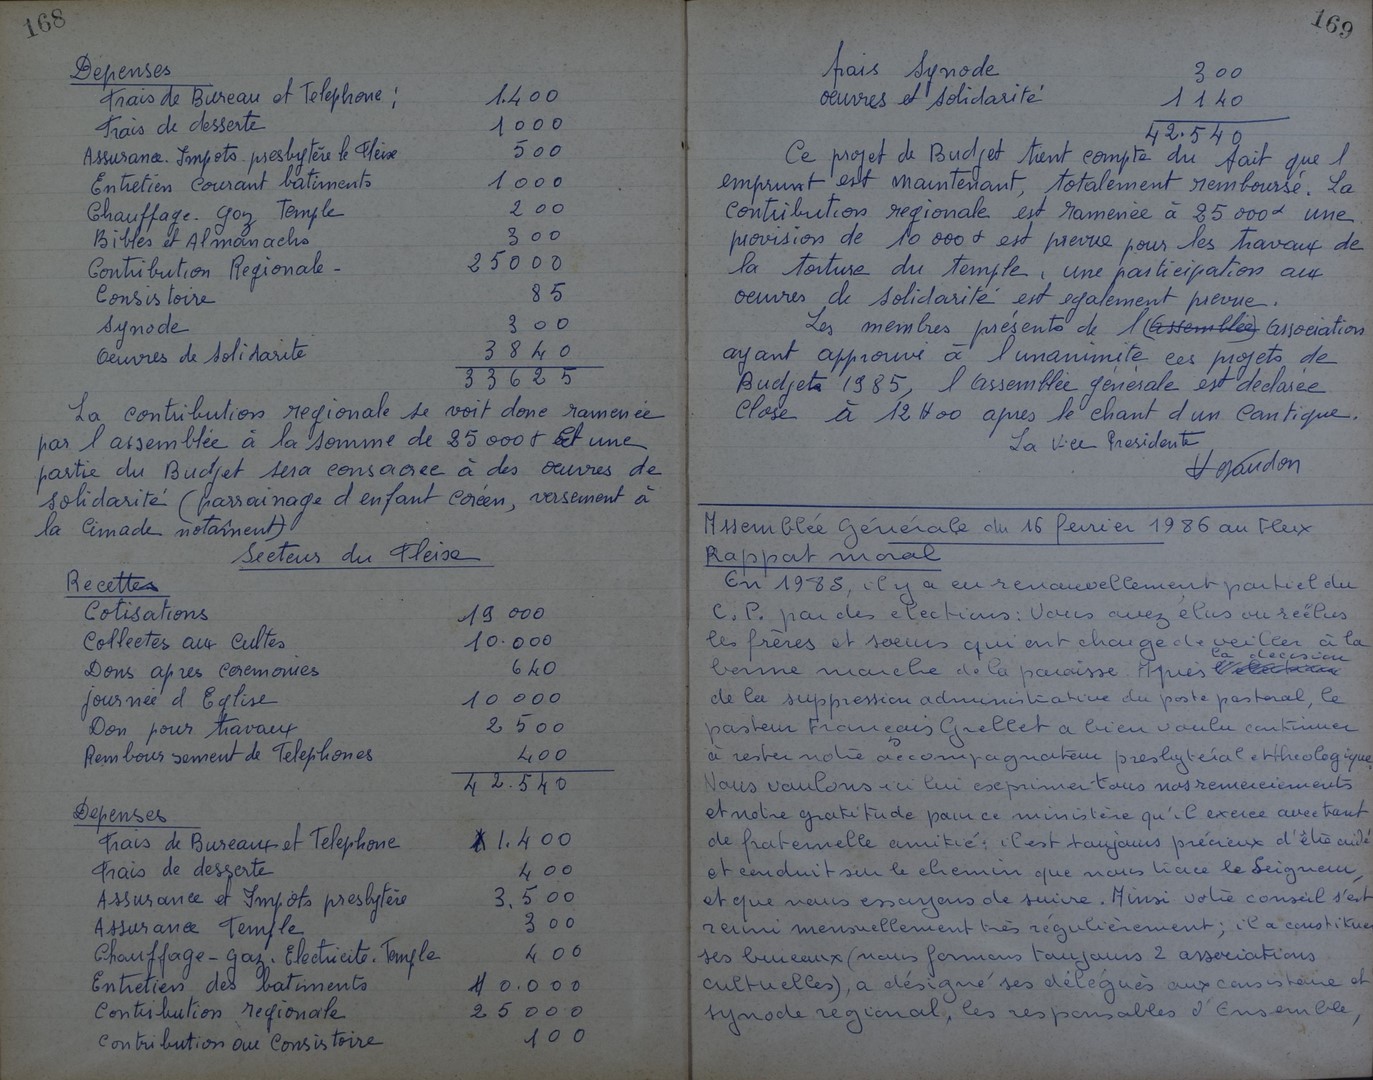 168
Depenses
Frais de Bureau et Telephone : 1.400
Frais de desserte 1000
Assurance. Impots. presbytère le Fleix 500
Entretien courant batiments 1000
Chauffage. Gaz Temple 200
Bibles et Almanachs 300
Contribution Regionale - 25000
Consistoire 85
Synode 300
Oeuvres de Solidarité 3840
33625
La contribution regionale se voit donc ramenée
par l assemblée à la somme de 25 000 F et une
partie du Budjet sera consacree à des oeuvres de
solidarité (parrainage d enfant Coréen, versement à
la Cimade notamment)
Secteur du Fleix
Recettes
Cotisations 19 000
Collectes aux Cultes 10.000
Dons apres ceremonies 640
journée d Eglise 10 000
Don pour travaux 2500
Remboursement de Telephones 400
42.540
Depenses
Frais de Bureau et Telephone 1.400
Frais de desserte 400
Assurance et Impôts presbytère 3.500
Assurance Temple 300
Chauffage - gaz. Electricite. Temple 400
Entretien des batiments 10.000
Contribution regionale 25000
Contribution au Consistoire 100
169
frais Synode 300
oeuvres et Solidarité 1140
42.540
Ce projet de Budjet tient compte du fait que l
emprunt est maintenant, totalement remboursé. La
contribution regionale est ramenée à 25 000F une
provision de 10 000 F est prevue pour les travaux de
la toiture du temple, une participation aux
oeuvres de Solidarité est egalement prevue.
Les membres présents de l (assemblée) association
ayant approuvé à l unanimité ces projets de
Budjets 1985, l assemblée générale est declarée
Close à 12H00 apres le chant d un Cantique.
La Vice Presidente
Assemblée Générale du 16 fevrier 1986 au Fleix
Rapport moral
En 1985, il y a eu renouvellement partiel du
C. P. par des elections : Vous avez élus ou réélus
les frères et soeurs qui ont charge de veiller à la
bonne marche de la paroisse. Après la decision
de la suppression administrative du poste pastoral, le
pasteur Français Grellet a bien voulu continuer
à rester notre accompagnateur presbytéral et theologique
Nous voulons ici lui exprimer tous nos remerciements
et notre gratitude pour ce ministère qu'il exerce avec tant
de fraternelle amitié : il est toujours précieux d'être aidé
et conduit sur le chemin que nous trace le Seigneur,
et que nous essayons de suivre. Ainsi votre conseil s'est
reuni mensuellement très régulièrement ; il a constitué
ses bureaux (nous formons toujours 2 associations
cultuelles), a désigné ses délégués aux consistoire et
synode régional, les responsables d'Ensemble,